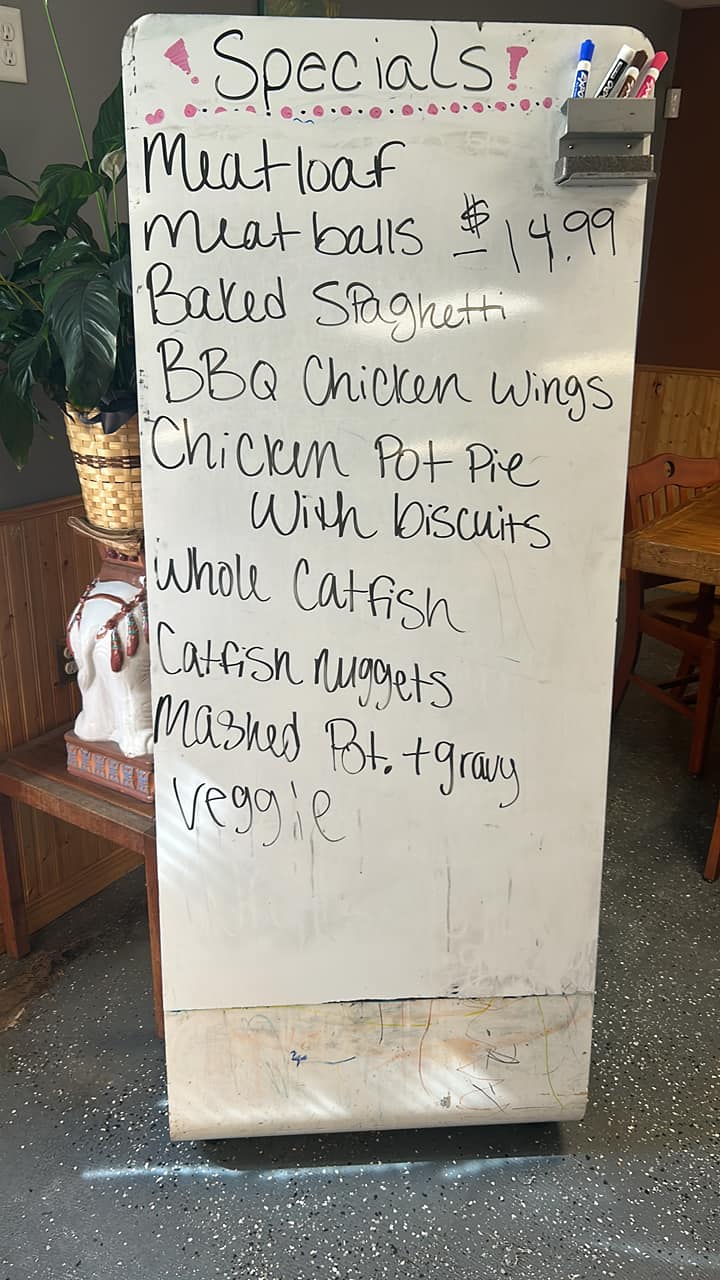 ! Specials !
Meatloaf
meatballs $14.99
Baked Spaghetti
BBQ Chicken Wings
Chicken Pot Pie
With biscuits
Whole Catfish
Catfish nuggets
Mashed Pot. + gravy
Veggie